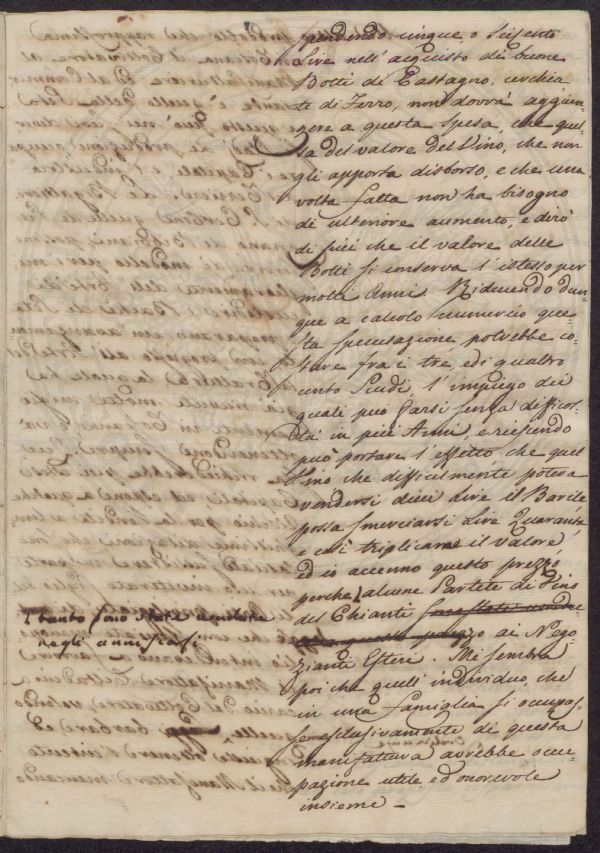 spendendo cinque o Seicento
Lire nell'acquisto di buone
Botti di Castagno, cerchia
te di Ferro, non dovrà aggiun
gere a questa Spesa, che quel
la del valore del Vino, che non
gli apporta disborso, e che una
volta fatta non ha bisogno
di ulteriore aumento, e dirò
di più che il valore delle
Botti si conserva l'istesso per
molti Anni. Riducendo dun
que a calcolo numerico que
sta speculazione potrebbe co
stare fra i tre, ed i quattro
cento Scudi, l'impiego dei
quali può farsi senza difficol
tà in più Anni, e riescendo
può portare l'effetto che quel
Vino che difficilmente poteva
vendersi dieci Lire il Barile
possa smerciarsi Lire Quaranta
e così triplicarne il valore,
ed io accenno questo prezzo,
perche alcune Partite di Vino
del Chianti sono state vendu
te a questo prezzo ai Nego
zianti Esteri. Mi sembra
poi che quell'individuo, che
in una Famiglia si occupas
se esclusivamente di questa
manifattura avrebbe occu
pazione utile ed onorevole
insieme –
Tanto sono state vendute
negli anni scorsi